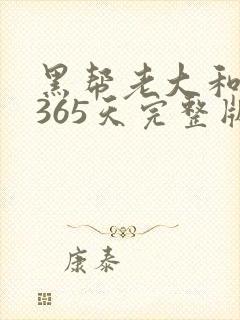 黑帮老大和
365天完整版
康泰